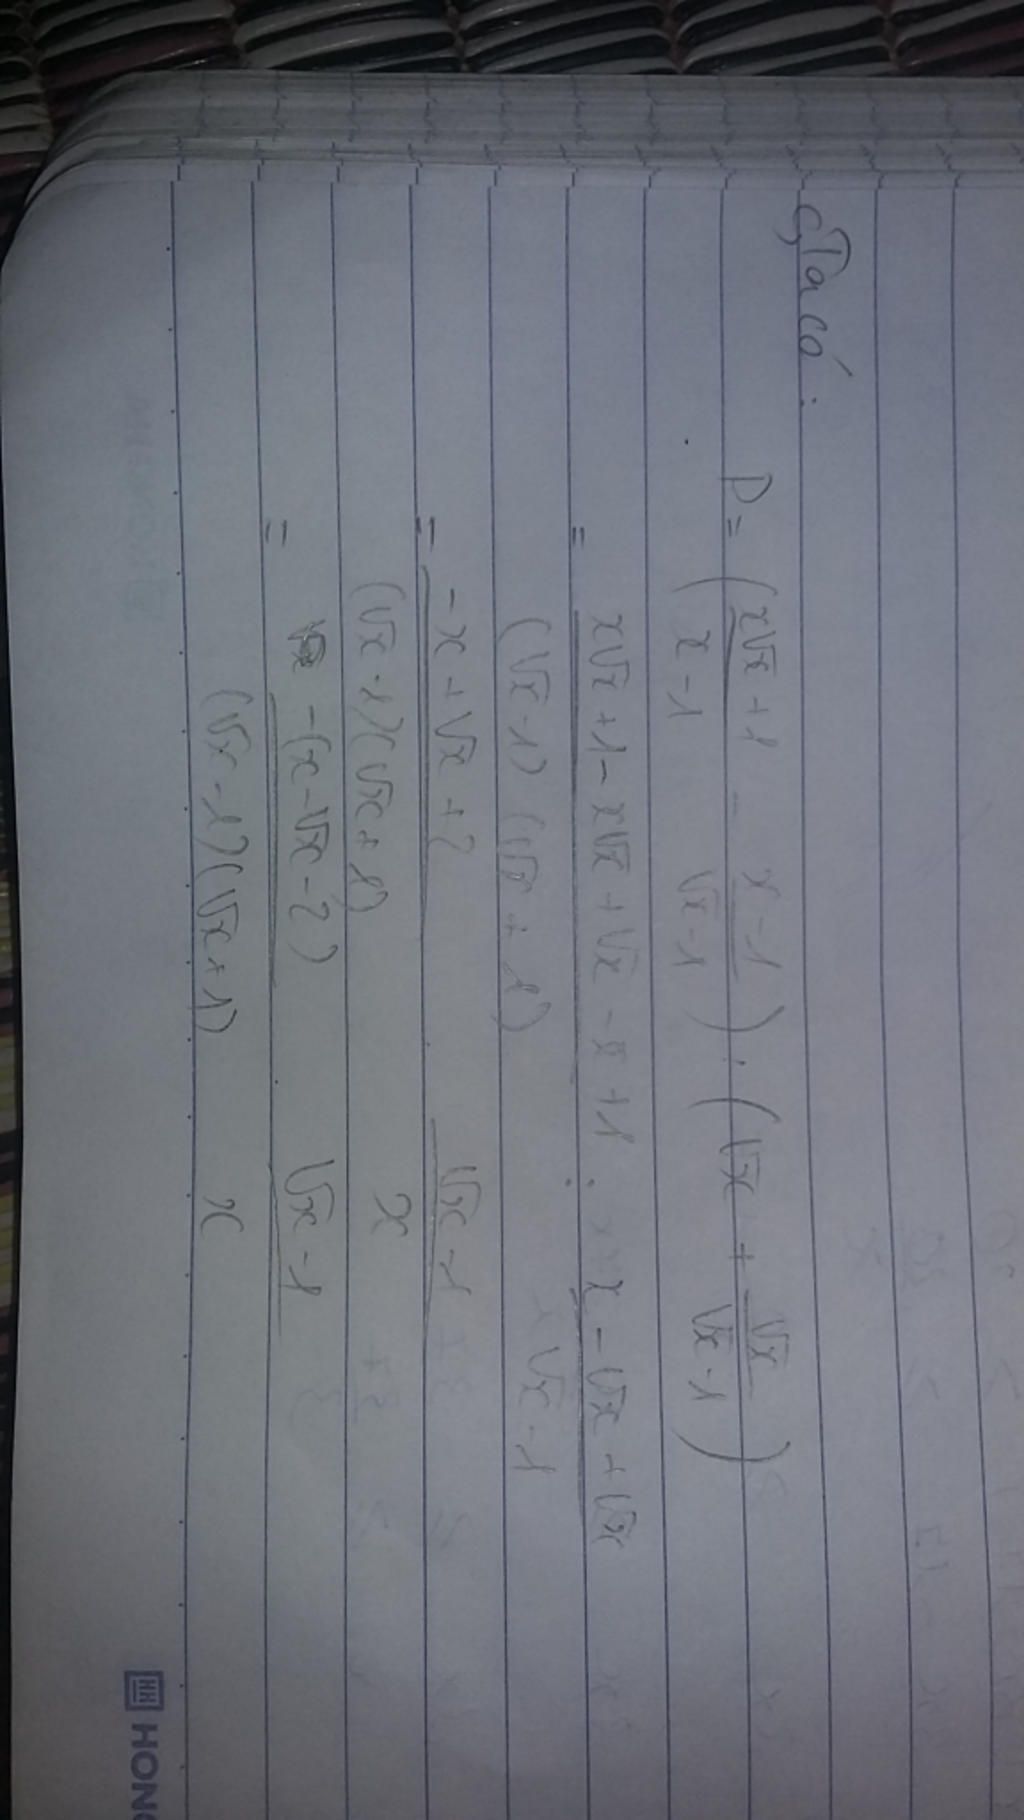 c, Ta có:
P = (x√x + 1 / x - 1 - x - 1 / √x - 1) : (√x + √x / √x - 1)
= x√x + 1 - x√x + √x - x + 1 / (√x - 1)(√x + 1) : x - √x + √x / √x - 1
= -x + √x + 2 / (√x - 1)(√x + 1) . √x - 1 / x
= -(x - √x - 2) / (√x - 1)(√x + 1) . √x - 1 / x
HONG